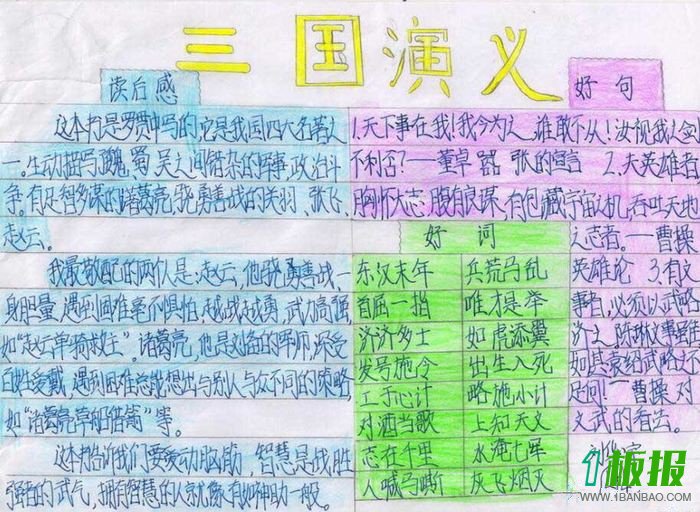 三国演义
读后感
这本书是罗贯中写的它是我国四大名著之
一。生动描写魏、蜀、吴之间错杂的军事政治斗
争。有足智多谋的诸葛亮,骁勇善战的关羽、张飞、
赵云。
我最敬配的两个人是:赵云,他骁勇善战,一
身胆量,遇到困难毫不惧怕,越战越勇,武力高强,
如"赵云单骑救主"。诸葛亮,他是刘备的军师,深受
百姓爱戴,遇到困难总能想出与别人与众不同的策略,
如"诸葛亮草船借箭"等。
这本书告诉我们要爱动脑筋,智慧是战胜
强者的武气,拥有智慧的人就像有如神助一般。
好句
1.天下事在我!我今为之,谁敢不从!汝视我之剑
不利否?——董卓嚣张的宣言 2.夫英雄者
胸怀大志,腹有良谋,有包藏宇宙之机,吞吐天地
之志者。—曹操
英雄论 3.有文
事者,必须以武略
济之
足间!—曹操对
文武的看法。
好词
东汉末年 兵荒马乱
首屈一指 唯才是举
济济多士 如虎添翼
发号施令 出生入死
工于心计 略施小计
对酒当歌 上知天文
志在千里 水淹七军
人喊马嘶 灰飞烟灭
1板报
WWW.1BANBAO.COM